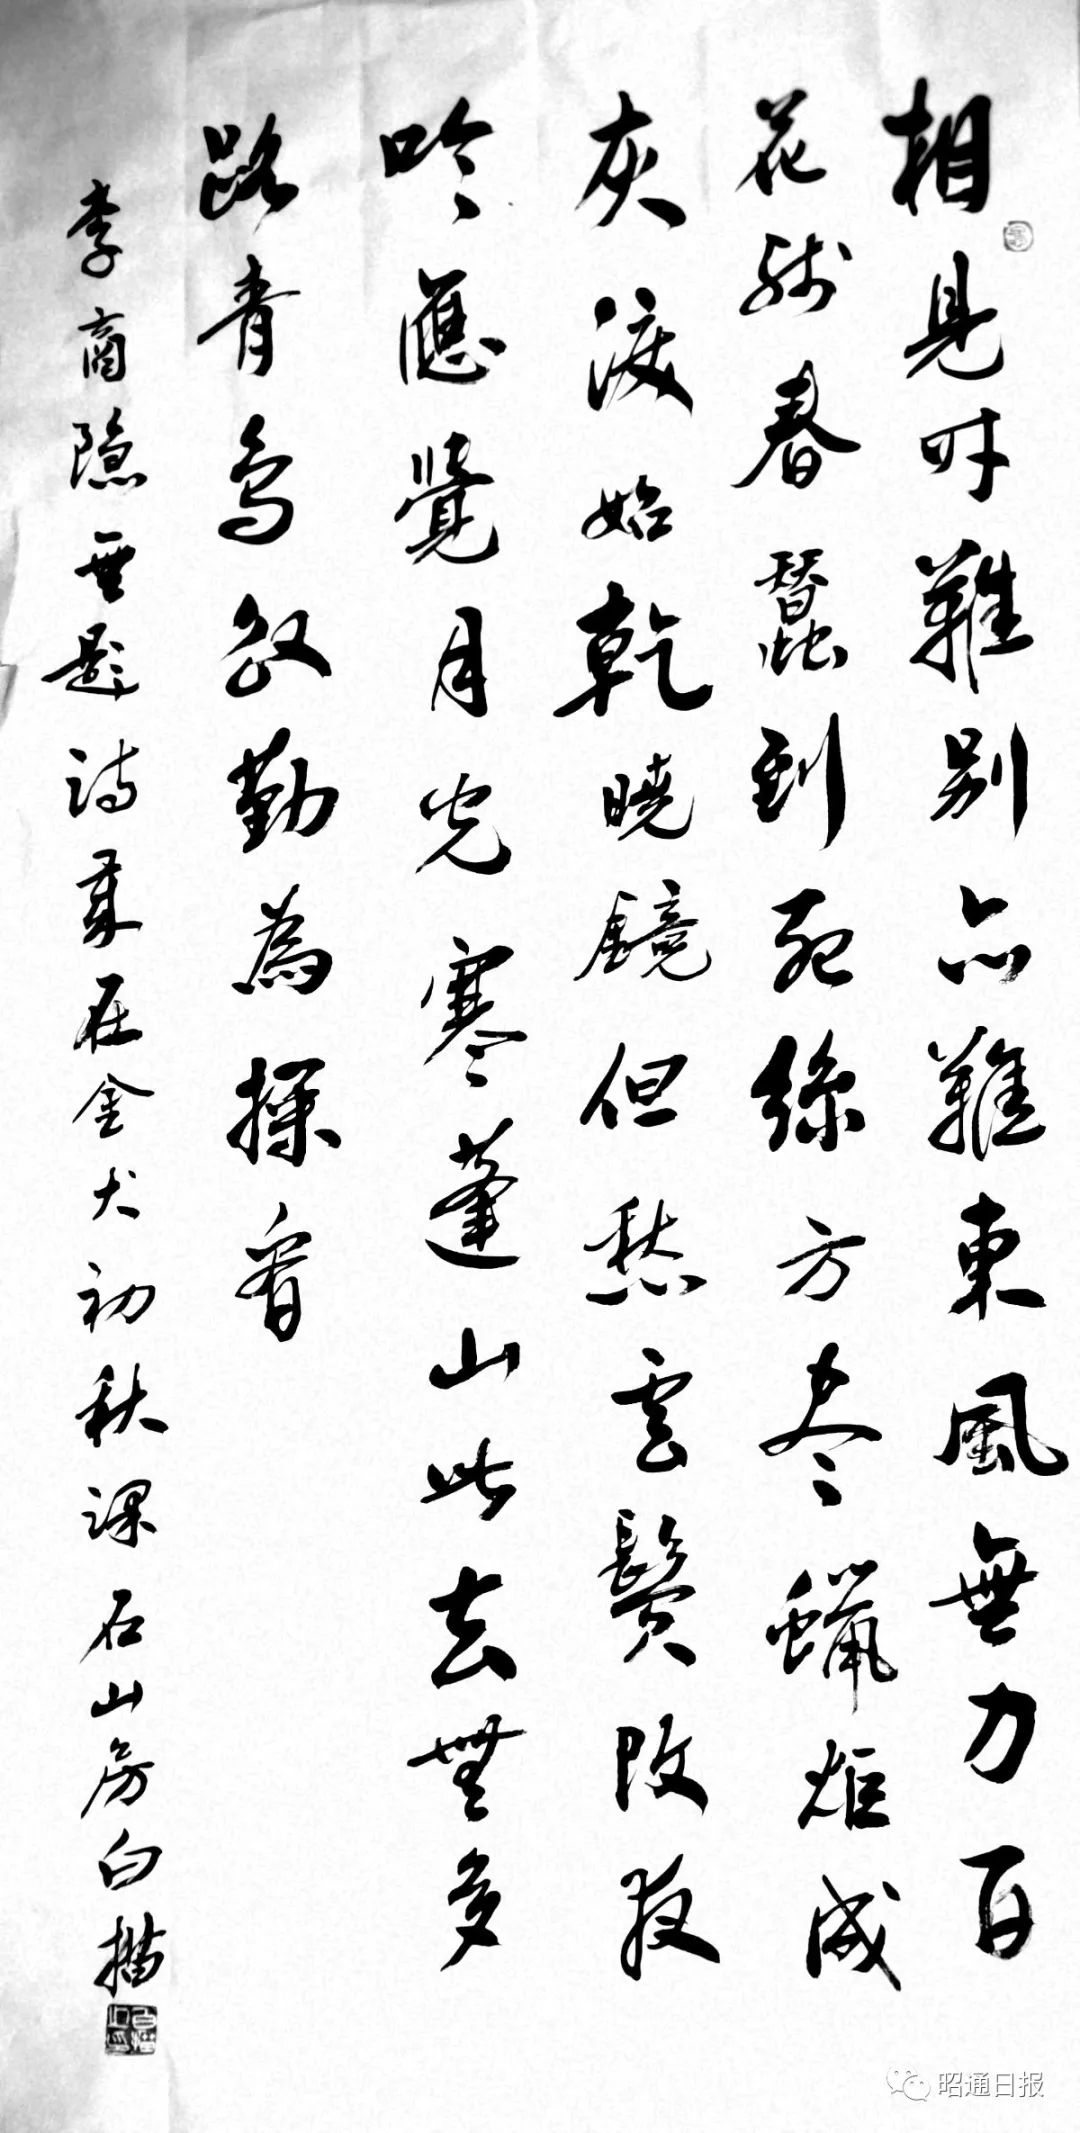 相見时難别亦難東風無力百
花残春蠶到死絲方尽蠟炬成
灰淚始乾曉鏡但愁雲鬢改夜
吟應覺月光寒蓬山此去無多
路青鸟殷勤為探看
李商隐無題诗歲在金犬初秋课石山房白描
昭通日报